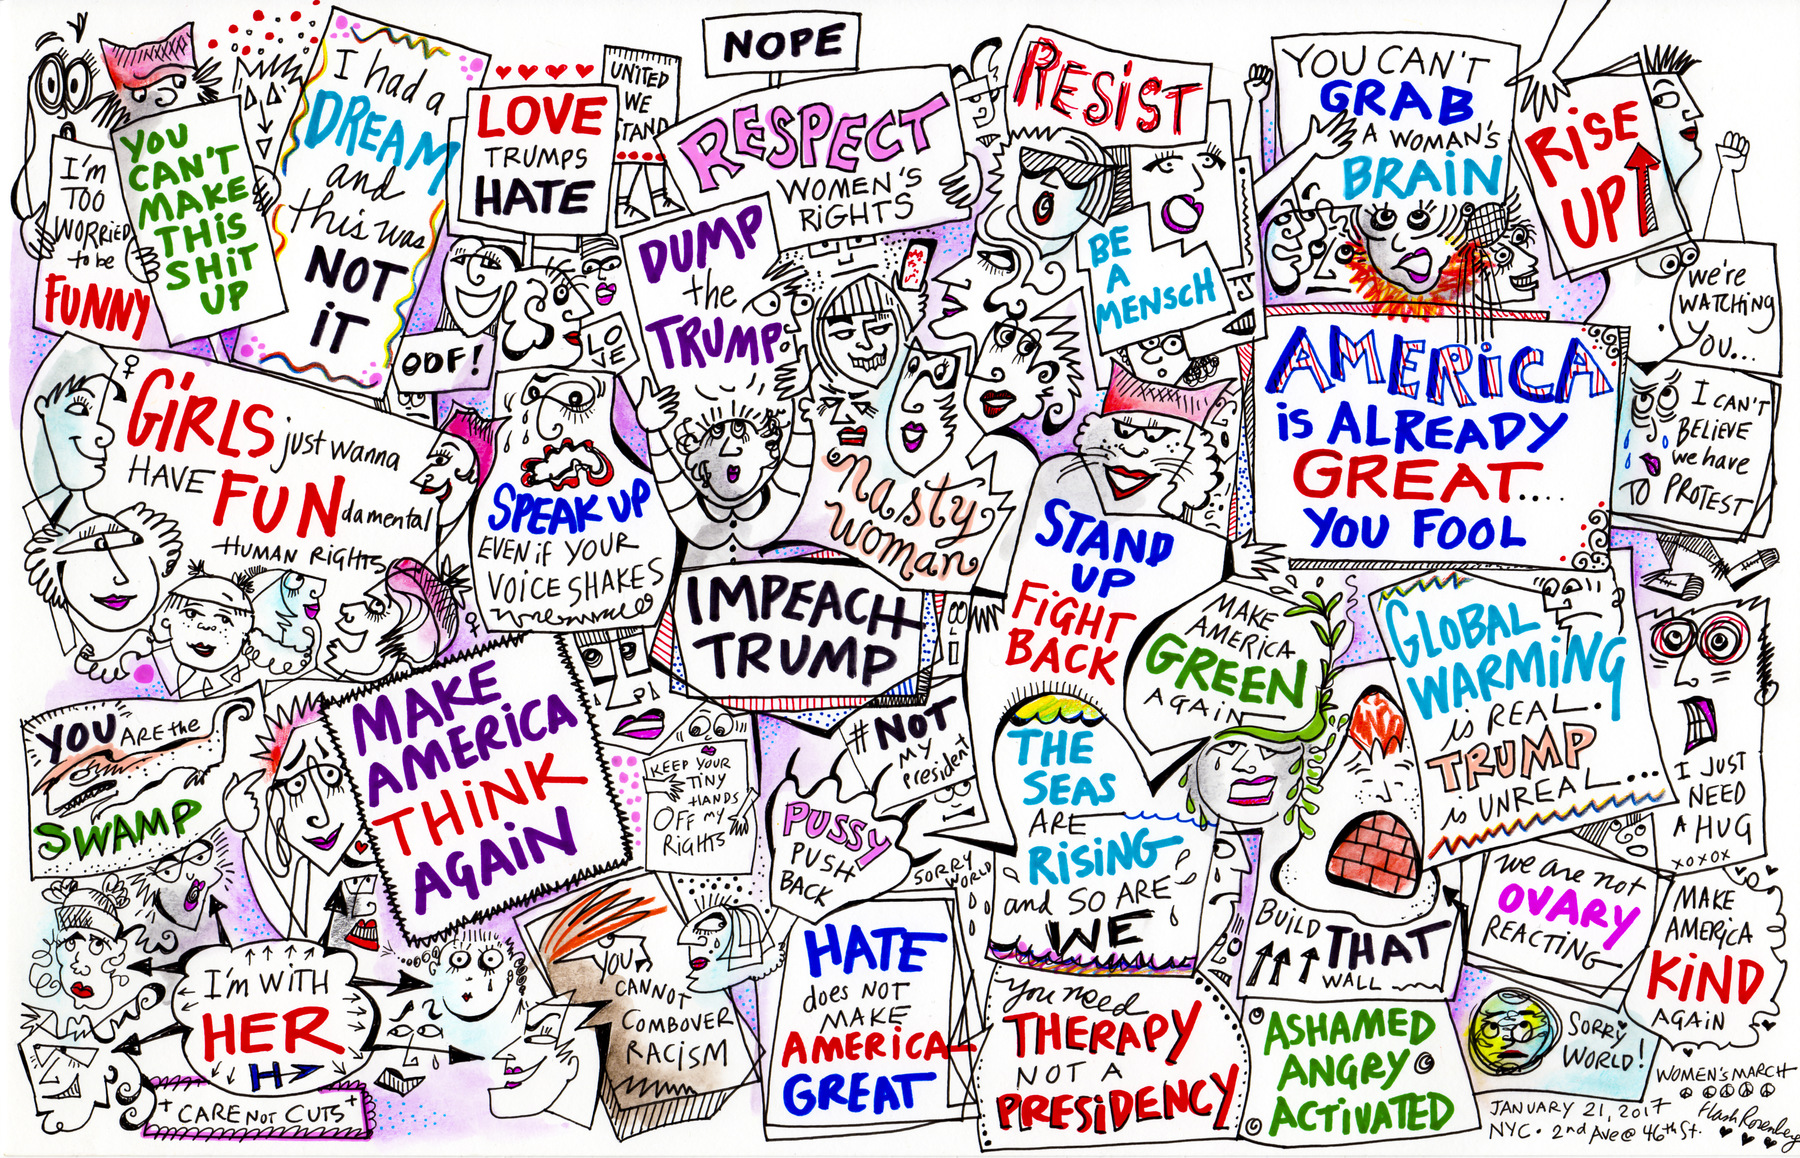 I'M
TOO
WORRIED
to be
FUNNY
YOU
CAN'T
MAKE
THIS
SHIT
UP
I had a
DREAM
and
this was
NOT
IT
LOVE
TRUMPS
HATE
UNITED
WE
STAND
NOPE
RESPECT
WOMEN'S
RIGHTS
DUMP
the
TRUMP
RESIST
BE
A
MENSCH
YOU CAN'T
GRAB
A WOMAN'S
BRAIN
RISE
UP
we're
WATCHING
YOU...
OOF!
LO
VE
GIRLS just wanna
HAVE FUN damental
HUMAN RIGHTS
SPEAK UP
EVEN if YOUR
VOICE SHAKES
nasty
woman
IMPEACH
TRUMP
STAND
UP
FIGHT
BACK
AMERICA
is ALREADY
GREAT....
YOU FOOL
I CAN'T
BELIEVE
we have
TO PROTEST
MAKE
AMERICA
GREEN
AGAIN
GLOBAL
WARMING
is REAL.
TRUMP
is UNREAL...
I JUST
NEED
A HUG
XOXOX
YOU ARE the
SWAMP
MAKE
AMERICA
THINK
AGAIN
KEEP YOUR
TINY
HANDS
OFF my
RIGHTS
#NOT
MY
President
PUSSY
PUSH
BACK
SORRY
WORLD
THE
SEAS
ARE
RISING
and SO ARE
WE
BUILD THAT
WALL
we are not
OVARY
REACTING
MAKE
AMERICA
KIND
AGAIN
I'm WITH
HER
H
CARE NOT CUTS
YOU
CANNOT
COMBOVER
RACISM
HATE
does NOT
MAKE
AMERICA
GREAT
You need
THERAPY
NOT A
PRESIDENCY
ASHAMED
ANGRY
ACTIVATED
SORRY
WORLD!
WOMEN'S MARCH
JANUARY 21, 2017
NYC • 2nd Ave @ 46th St.
Flash Rosenberg